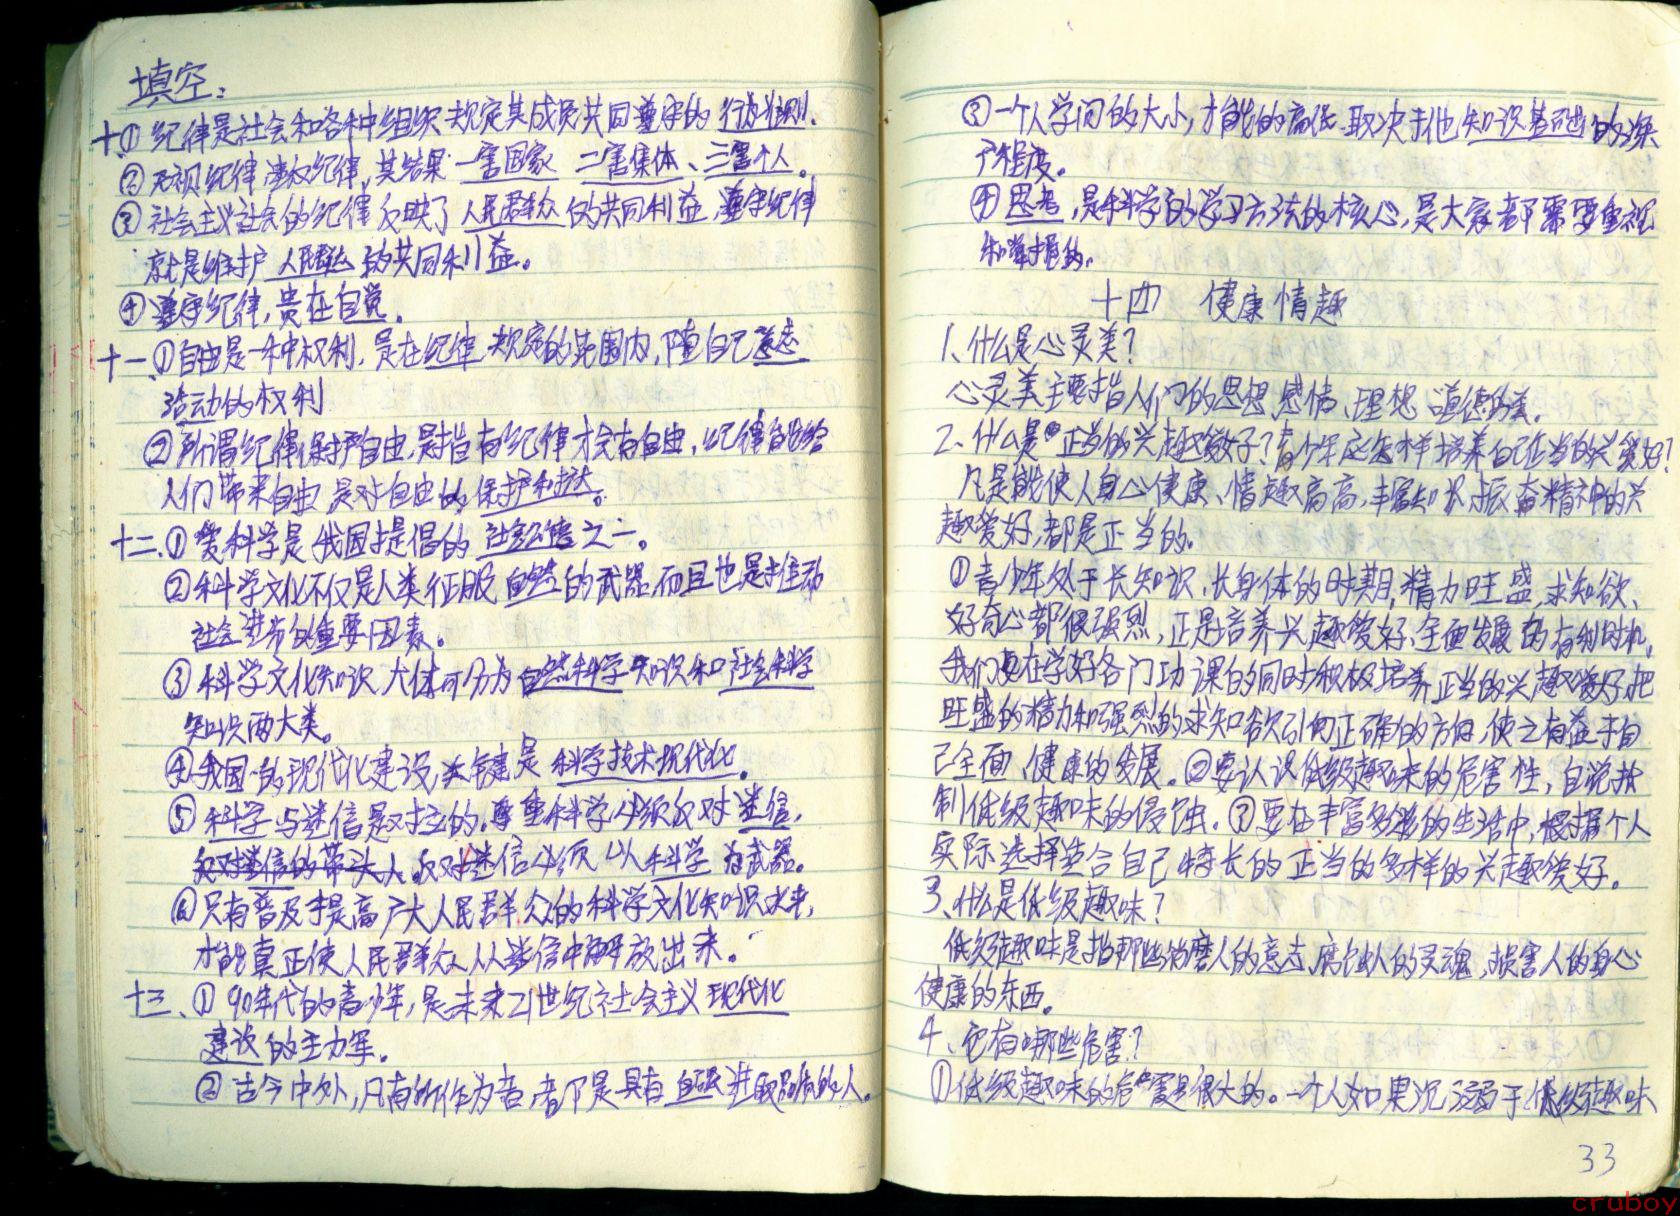 填空:
十、① 纪律是社会和各种组织规定其成员共同遵守的 行为准则.
② 无视纪律,违反纪律,其结果 一害国家 二害集体、三害个人。
③ 社会主义社会的纪律反映了 人民群众 的共同利益,遵守纪律
就是维护 人民群众 的共同利益。
④ 遵守纪律,贵在自觉.
十一、① 自由是一种权利,是在纪律 规定的范围内,随自己意志
活动的权利
② 所谓纪律保护自由,是指有纪律才会有自由,纪律能给
人们带来自由 是对自由的 保护和
十二、① 爱科学是我国提倡的 社会公德之一。
② 科学文化不仅是人类征服 自然 的武器,而且也是推动
社会进步的重要因素。
③ 科学文化知识大体可分为 自然科学 知识和 社会科学
知识两大类。
④ 我国的现代化建设,关键是 科学技术现代化.
⑤ 科学与迷信是对立的.尊重科学必须反对 迷信,
反对迷信的带头人.反对迷信必须以科学为武器。
⑥ 只有普及和提高广大人民群众的科学文化知识水平,
才能真正使人民群众从迷信中解放出来。
十三、① 90年代的青少年,是未来21世纪社会主义 现代化
建设 的主力军。
② 古今中外,凡有所作为者,都是具有 自强进取品质的人。
③ 一个人学问的大小,才能的高低,取决于他 知识基础 的深
广程度。
④ 思考,是科学的学习方法的核心,是大家都需要重视
和掌握的.
十四 健康情趣
1、什么是心灵美?
心灵美主要指人们的思想、感情、理想、道德的美.
2、什么是正当的兴趣爱好?青少年应怎样培养自己正当的兴趣爱好?
凡是能使人身心健康、情趣高尚,丰富知识,振奋精神的兴
趣爱好,都是正当的.
① 青少年处于长知识、长身体的时期,精力旺盛,求知欲、
好奇心都很强烈,正是培养兴趣爱好、全面发展的有利时机,
我们要在学好各门功课的同时积极培养正当的兴趣爱好,把
旺盛的精力和强烈的求知欲引向正确的方向,使之有益于自
己全面、健康的发展。②要认识低级趣味的危害性,自觉抵
制低级趣味的侵蚀.③要在丰富多彩的生活中,根据个人
实际选择适合自己特长的正当的多样的兴趣爱好。
3、什么是低级趣味?
低级趣味是指那些消磨人的意志,腐蚀人的灵魂,损害人的身心
健康的东西。
4、它有哪些危害?
①低级趣味的危害是很大的。一个人如果沉溺于低级趣味
33
cruboy